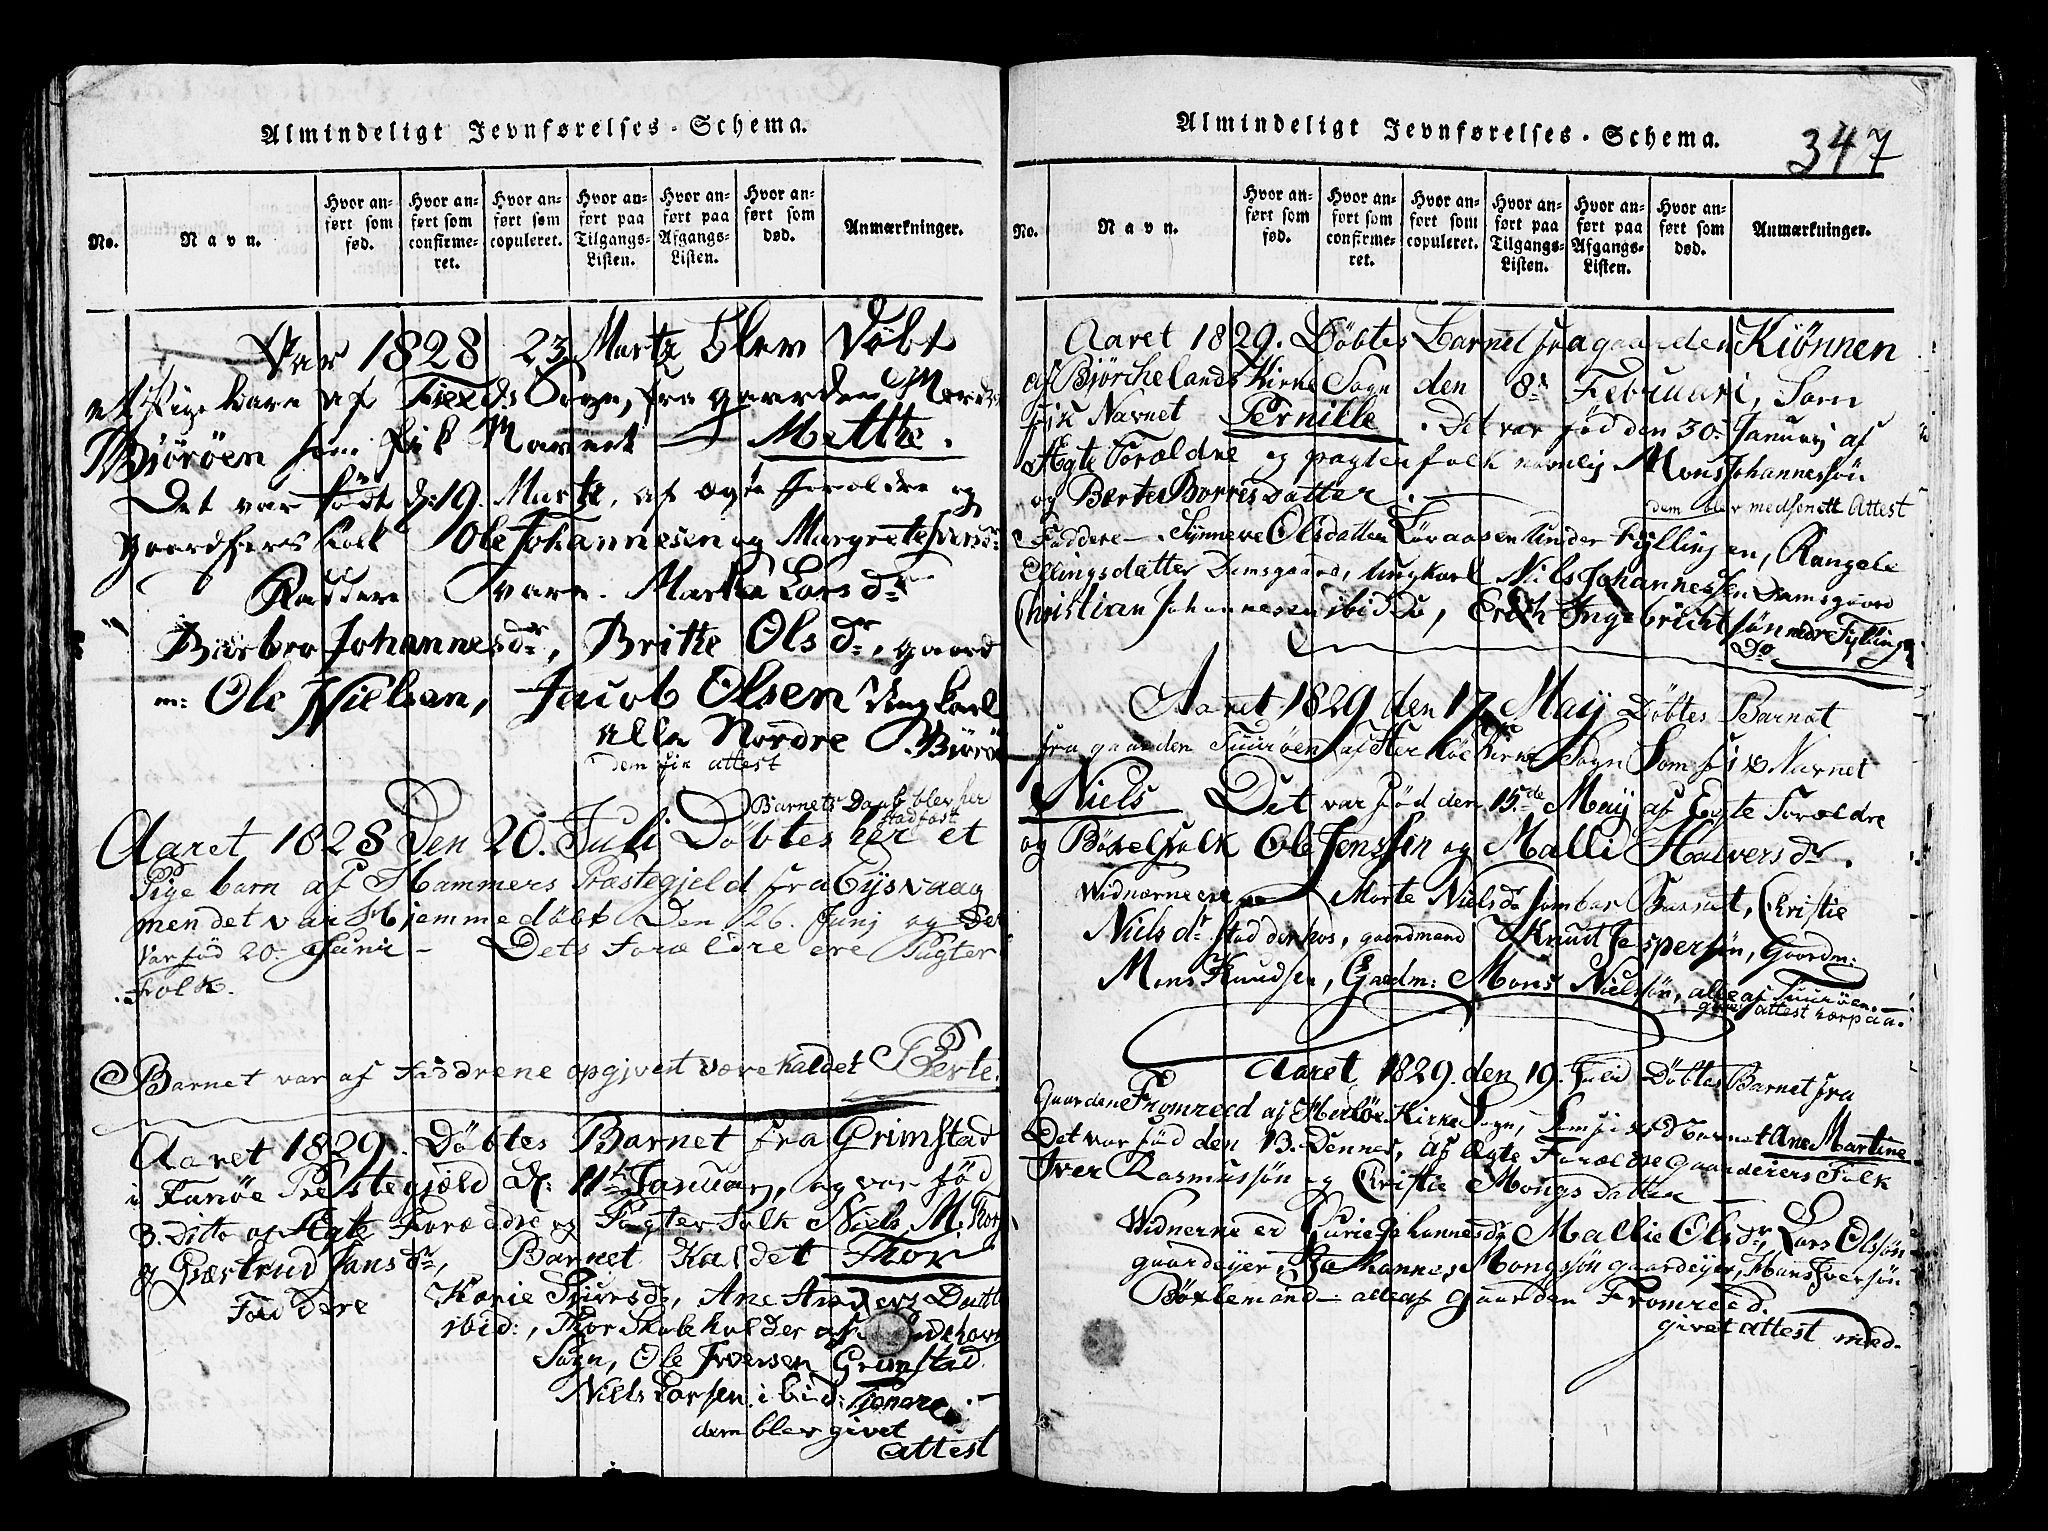 Almindeligt Jevnførelses-Schema.
No.
Navn.
Hvor anført som fød.
Hvor anført som confirmeret.
Hvor anført som copuleret.
Hvor anført paa Tilgangs-Listen.
Hvor anført paa Afgangs-Listen.
Hvor anført som død.
Anmærkninger.
Var 1828 23 Martz blev Døbt
et Pige barn af Sogn, fra gaarden
Bjorøen som fik Navnet Mette.
Det var født d: 19. Martz, af ægte foroldre og
gaardfers folk Ole Johannesen og Margrete
Faddere vare. Marta Larsdr
Barbro Johannesdr, Britte Olsdr, gaard
m: Ole Nielsen, Jacob Olsen Ungkarl
alla Nordre Biorø
dem fik attest
Barnets Daab blev her
stadfast
Aaret 1828 Den 20. Juli Døbtes her et
Pige barn af Hammers Præstegjeld fra Eysvaag
men det var Hjemmedøbt Den 26. Junj og Det
Var fød 20. Juni - Dets Foræeldre ere Pagter
Folk.
Barnet var af Faddrene opgjvet være kaldet Berte.
Aaret 1829. Døbtes Barnet fra Grimstad
i Fanøe Prestegjæld d: 11te Januar, og var fød
3. Ditto af Ægte Forældre og Pagter Folk Niels M. Thor
og Giærtrud Jansdr, Barnet Kaldet Thor
Faddere Karie Siursdr, Ane Anders Datt
ibid:, Thor Skabeholder af
Sogn, Ole Iversen Grimstad.
Niels Larsen ibid: Tjenere
dem blev givet
attest
Almindeligt Jevnførelses-Schema.
347
No.
Navn.
Hvor anført som fød.
Hvor anført som confirmeret.
Hvor anført som copuleret.
Hvor anført paa Tilgangs-Listen.
Hvor anført paa Afgangs-Listen.
Hvor anført som død.
Anmærkninger.
Aaret 1829. Døbtes Barnet fra gaarden Kiønnen
af Bjørchelands Kirke Sogn den 8de Februari, Som
fik Navnet Pernille. Det var fød den 30. Januarj af
Ægte Forældre og pagter folk navnlig Mons Johannessøn
og Berte Borresdatter.
dem blev medsent Attest
Faddere - Synneve Olsdatter Løvaasen under Fyllingen, Rangele
Ellingsdatter Damsgaard, ungkarl Nils Johannessen Damsgaard
Christian Johannesen ibid Do, Erich Ingebrichtsøn nedre Fyllingen
Do
Aaret 1829 den 17 May Døbtes Barnet
fra gaarden Tuurøen af Herløe Kirke Sogn Som fik Navnet
Niels Det var fød den 15de May af Egte Foroeldre
og Bøxelfolk Ole Jenssen og Malli Halversdr.
Widnærne ere Marte Nielsdr som bar Barnet, Christie
Nielsdr stod derhos, gaardmand Knud Jespersøn, Gaardm:
Mons Knudsen, Gardm: Mons Nielssøn, alle af Tuurøen.
givet attest herpaa.
Aaret 1829. den 19. Juli Døbtes Barnet fra
Gaarden Fromreed af Herløe Kirke Sogn, Barnet Ane Martine
Det var fød den 13. Dennes, af Ægte Foræeldre gaardeiers Folk
Iver Rasmussøn og Christie Mongsdatter
Widnerne er Gurie Johannesdr Mallie Olsdr, Lars Olssøn
gaardeyer, Johannes Mongssøn gaardeyer, Hans Iversøn
Bøxlemand - alle af gaarden Fromreed.
givet attest med.